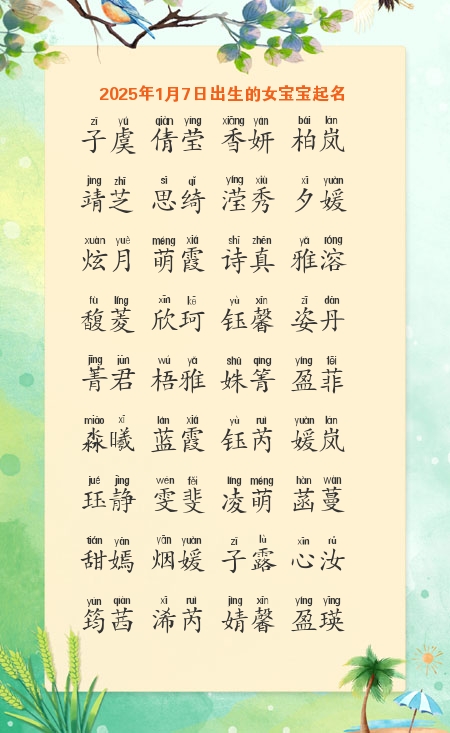 2025年1月7日出生的女宝宝起名
zǐ yú qiàn yíng xiāng yán bǎi lán
子虞 倩莹 香妍 柏岚
jìng zhī sī qǐ yíng xiù xī yuàn
靖芝 思绮 滢秀 夕媛
xuàn yuè méng xiá shī zhēn yǎ róng
炫月 萌霞 诗真 雅溶
fù líng xīn kē yù xīn zī dān
馥菱 欣珂 钰馨 姿丹
jīng jūn wú yǎ shū qìng yíng fēi
菁君 梧雅 姝箐 盈菲
miǎo xī lán xiá yù ruì yuàn lán
淼曦 蓝霞 钰芮 媛岚
jué jìng wén fěi líng méng hàn wàn
珏静 雯斐 凌萌 菡蔓
tián yān yān yuàn zǐ lù xīn rǔ
甜嫣 烟媛 子露 心汝
yún qiàn xī ruì jìng xīn yíng yīng
筠茜 浠芮 婧馨 盈瑛